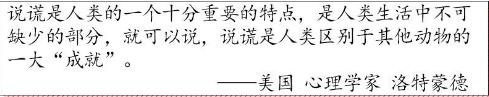 说谎是人类的一个十分重要的特点，是人类生活中不可
缺少的部分，就可以说，说谎是人类区别于其他动物的
一大“成就”。
——美国 心理学家 洛特蒙德